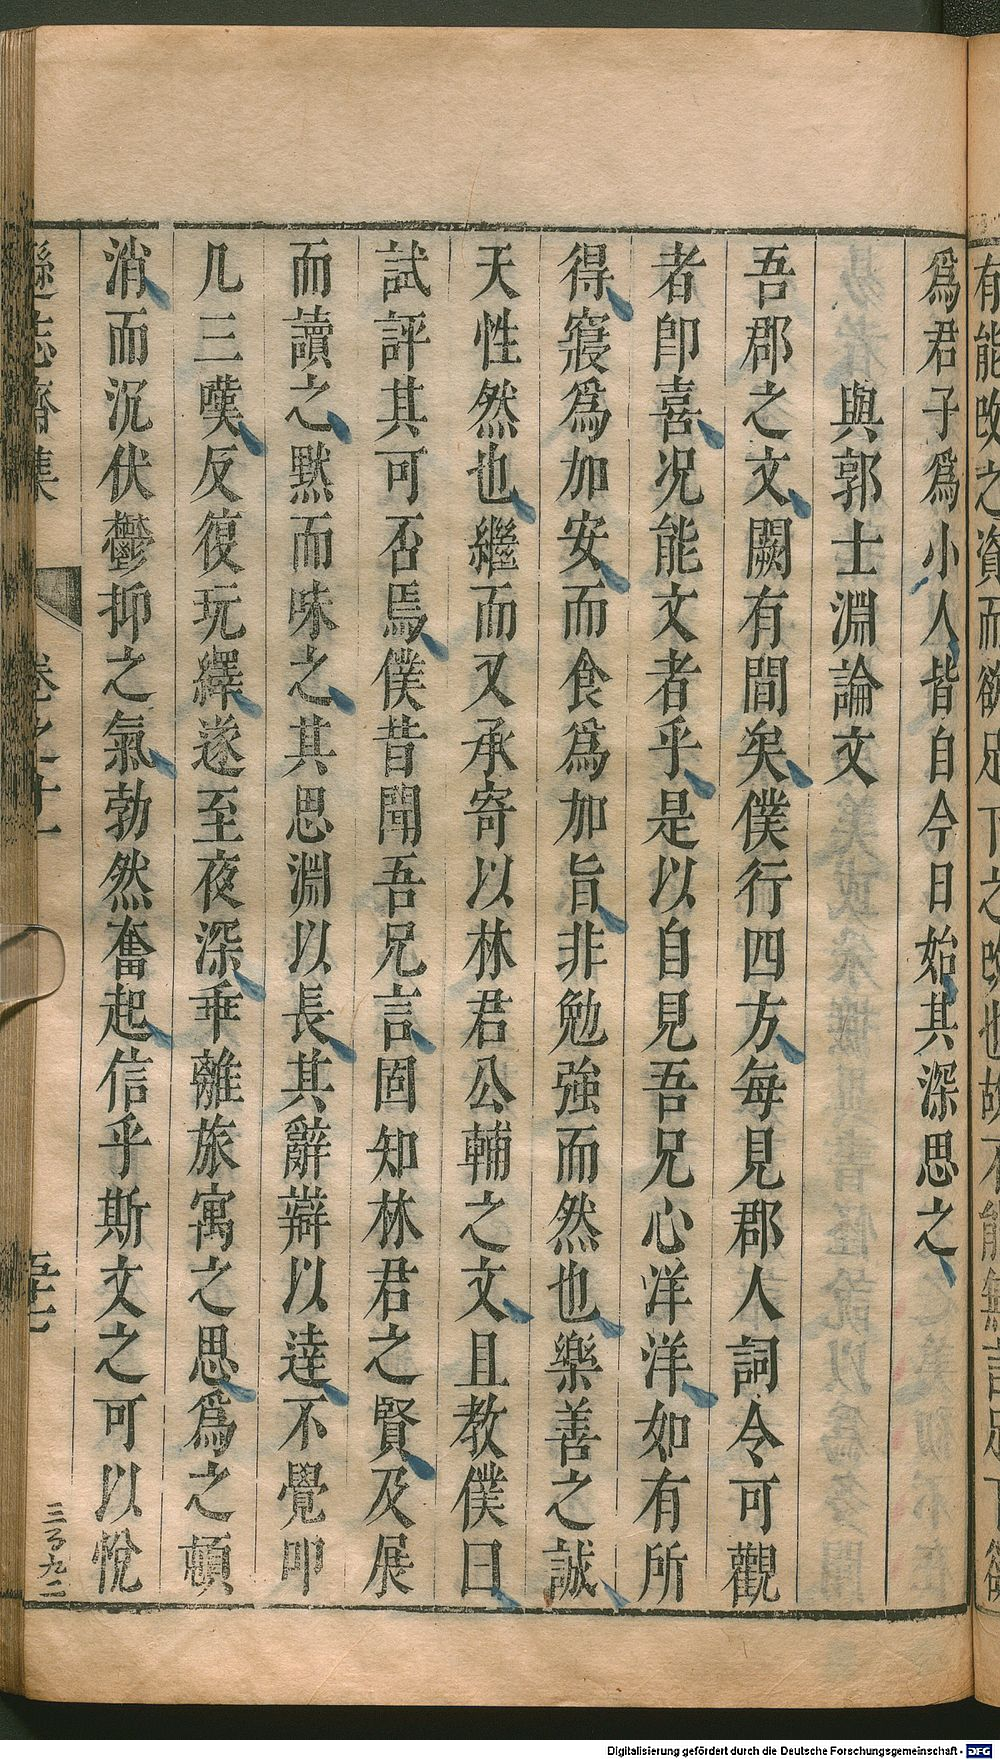 有能改之資而欲足下之改也故不能無言足下欲
爲君子爲小人皆自今日始其深思之
與郭士淵論文
吾郡之文闕有間矣僕行四方每見郡人詞令可觀
者卽喜况能文者乎是以自見吾兄心洋洋如有所
得寢爲加安而食爲加旨非勉強而然也樂善之誠
天性然也繼而又承寄以林君公輔之文且教僕曰
試評其可否焉僕昔聞吾兄言固知林君之賢及展
而讀之默而味之其思淵以長其辭辯以逹不覺叩
几三嘆反復玩繹遂至夜深乖離旅寓之思爲之頓
消而沉伏鬱抑之氣勃然奮起信乎斯文之可以悅
遜志齋集 卷之十一 五十七
Digitalisierung gefördert durch die Deutsche Forschungsgemeinschaft - DFG